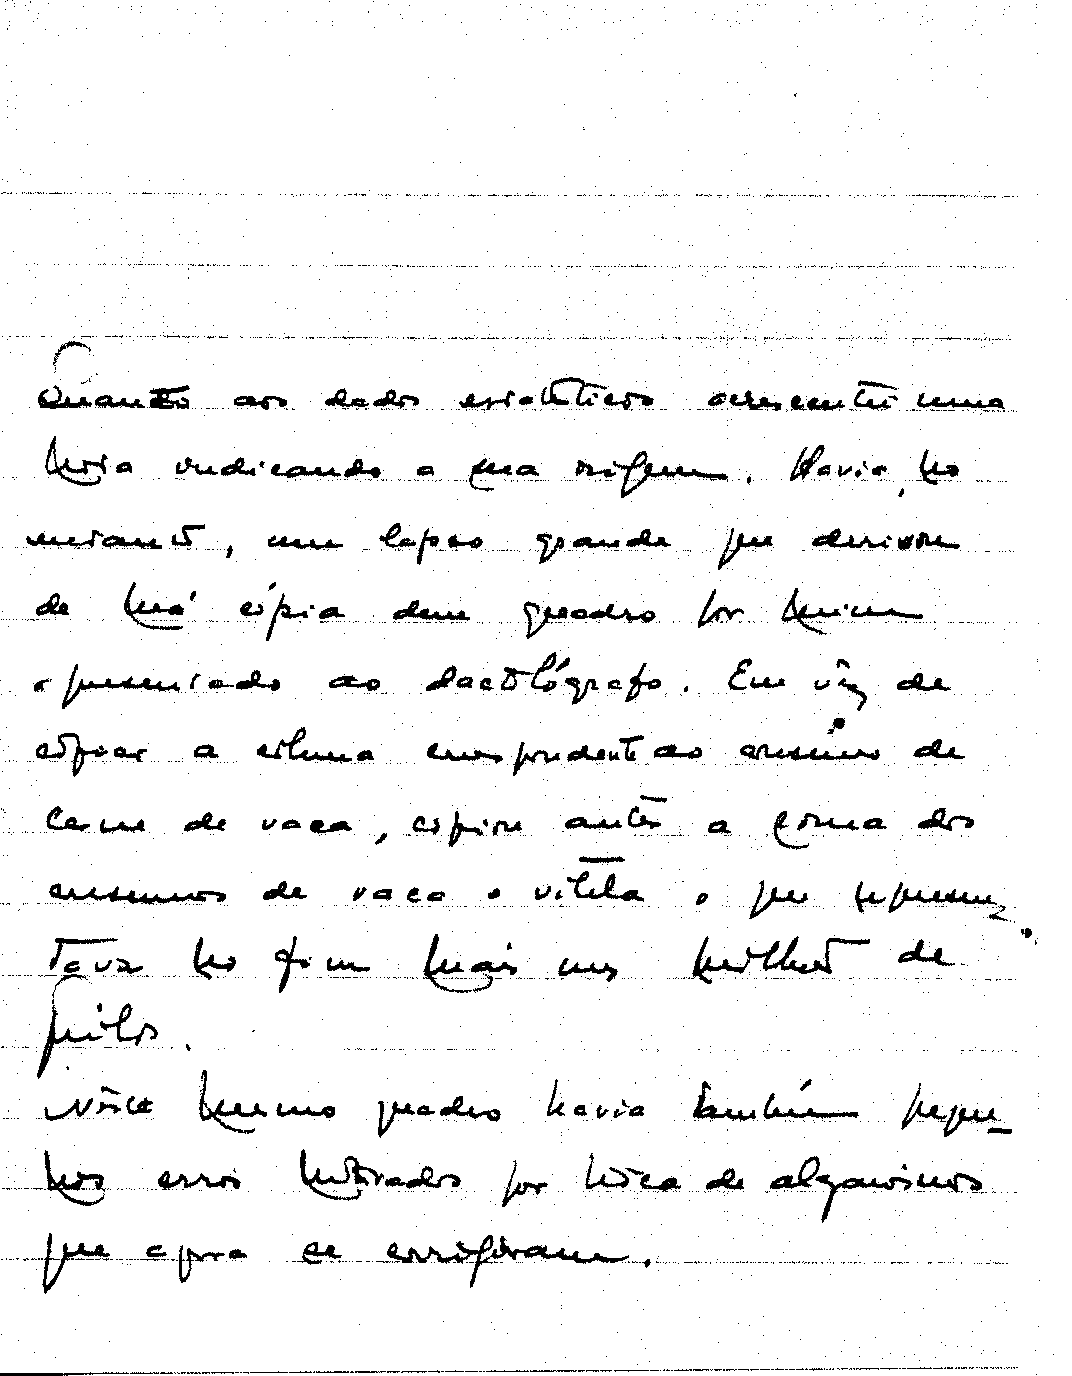 Quanto aos dados estatísticos acrescentei uma
nota indicando a sua origem. Havia, no
entanto, um lapso grande que derivou
de má cópia dum quadro por mim
apresentado ao dactilógrafo. Em vêz de
copiar a coluna correspondente ao consumo de
carne de vaca, copiou antes a soma dos
consumos de vaca e vitela o que represen-
tava no fim mais uns milhões de
quilos.
Nêste mesmo quadro havia também peque-
nos erros motivados por troca de algarismos
que agora se corrigiram.